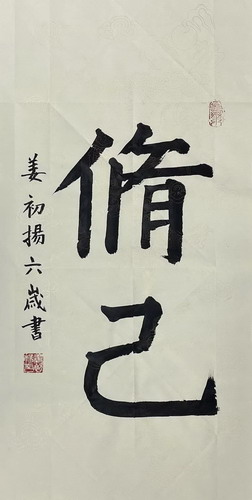 脩己
姜初揚六歲書